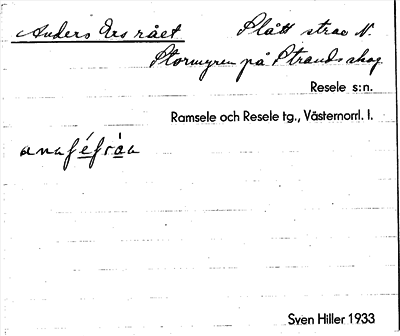 Anders Ers rået Slått strax N.
Stormyren på Strands skog
Resele s:n.
Ramsele och Resele tg., Västernorrl. l.
Sven Hiller 1933